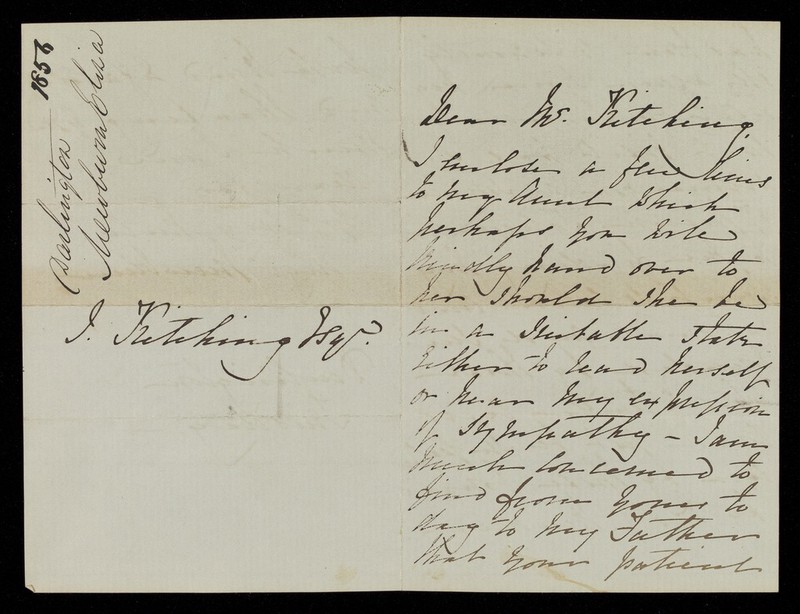 1856
Darlington
Newburn Eliza
J. Kitching Esqr.
Dear Mr. Kitching
I enclose a few lines
to my Aunt which
perhaps you will
kindly hand over to
her should she be
in a suitable state
either to read herself
or hear my expression
of sympathy - I am
much concerned to
find from yours to
day to my Father
that your patient